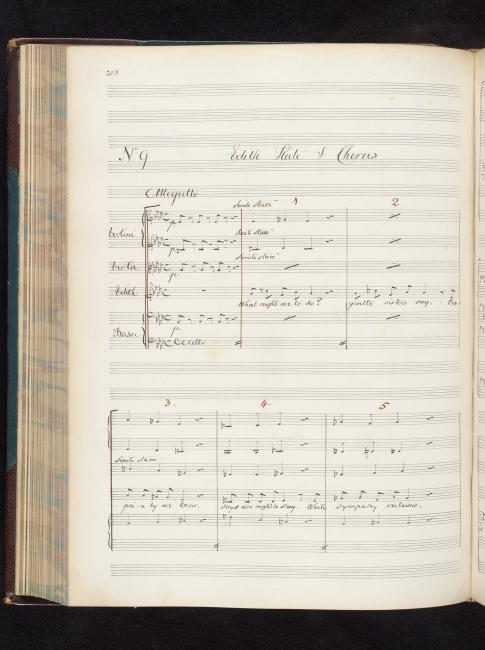 208
No 9 Edith Kate & Chorus
Allegretto
Simile stacc
1
2
Violini
p
Simile stacc
p
Simile stacc
Viola
p
Edith
What ought we to do? gentle sisters say. Pro-
p
Bassi
Cello
3.
4
5
Simile stacc
pri-e-ty we know, says we ought to stay. While sympathy exclaims,